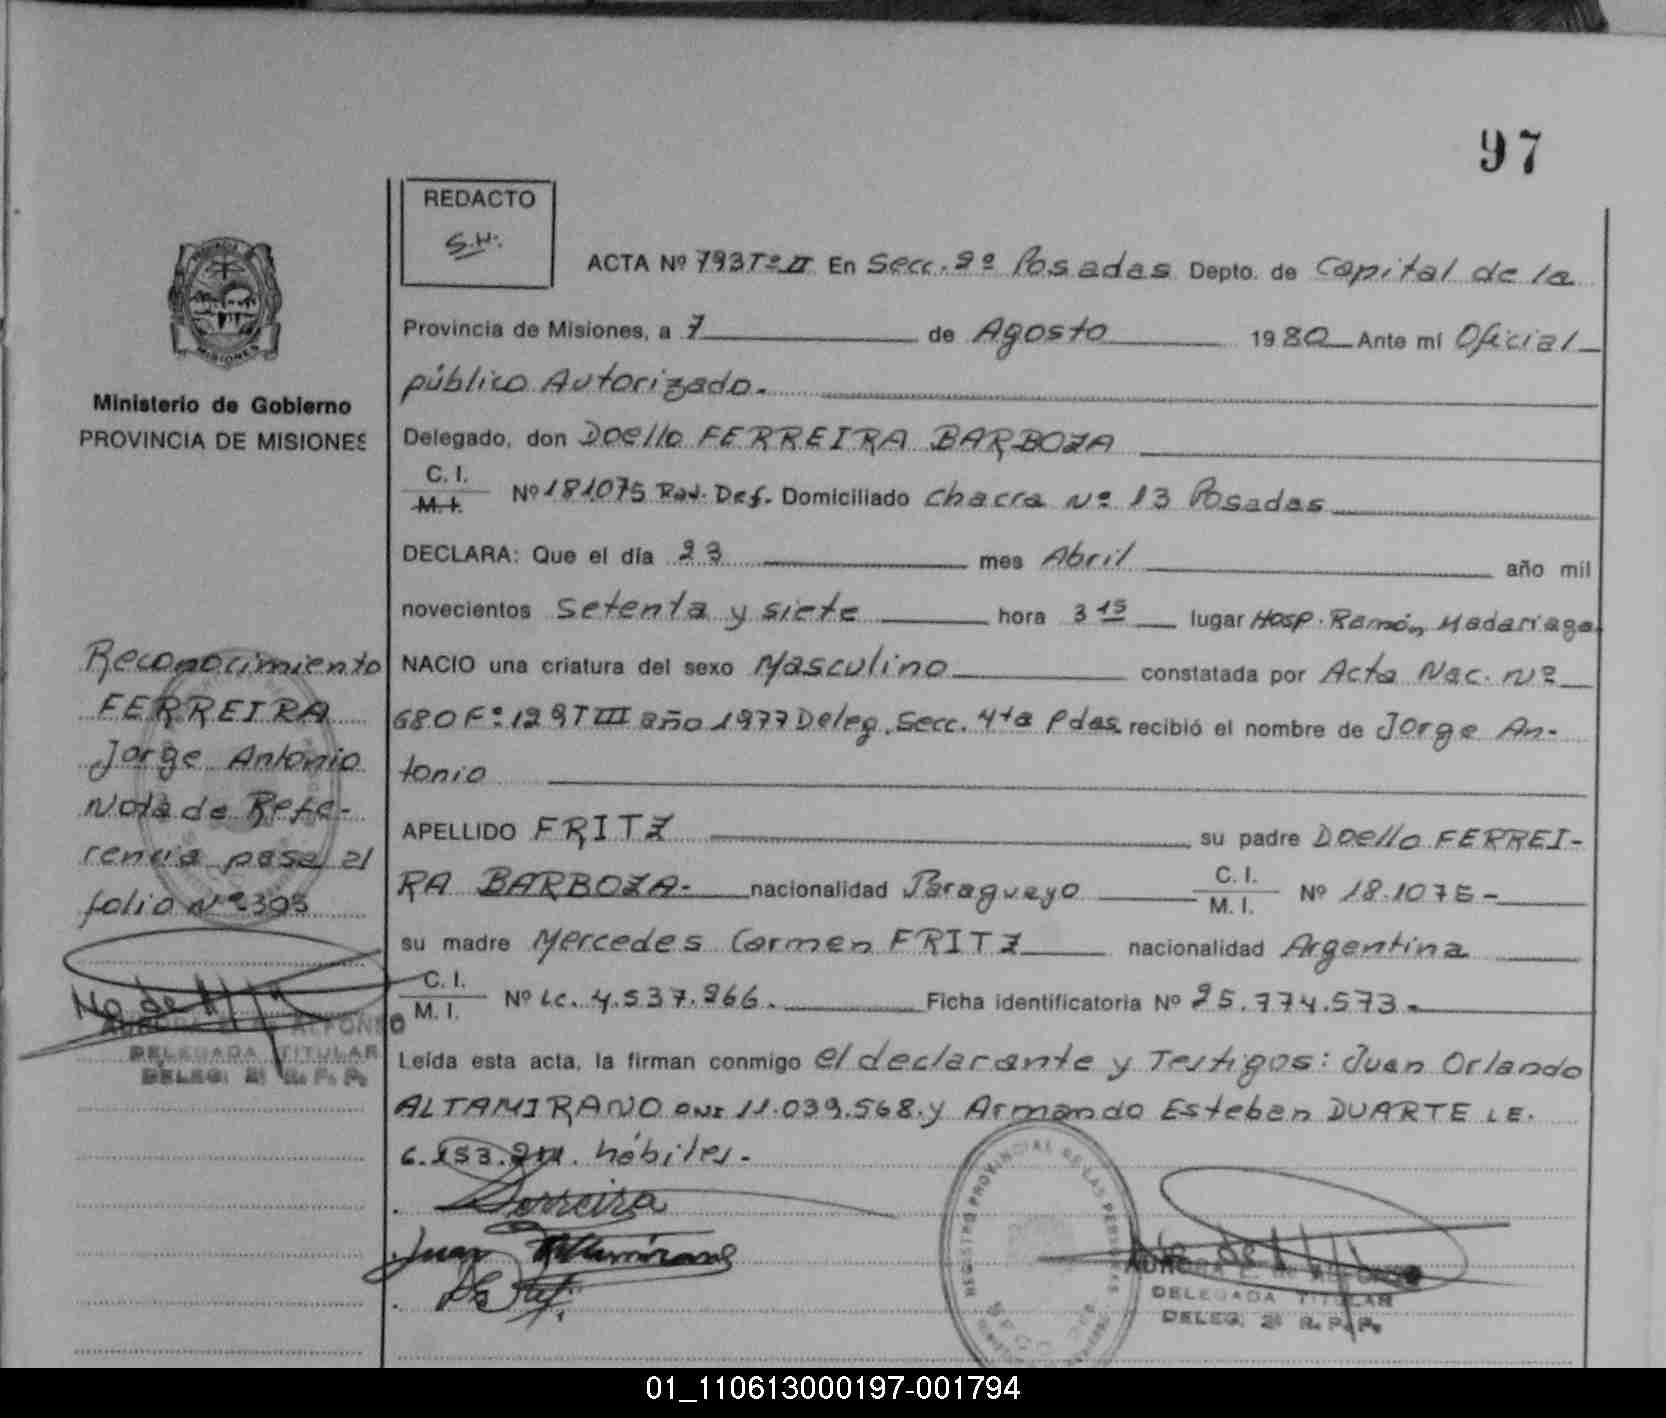 97
REDACTO
S.H.
ACTA Nº 793 Tº II En Secc. 2º Posadas Depto. de Capital de la
Provincia de Misiones, a 7 de Agosto 1980 Ante mí Oficial
público Autorizado.
Delegado, don Doello FERREIRA BARBOZA
C. I.
M. I.
Nº 181075 Rad. Def. Domiciliado Chacra Nº 13 Posadas
DECLARA: Que el día 23 mes Abril año mil
novecientos Setenta y siete hora 3 15 lugar Hosp. Ramón Madariaga
NACIO una criatura del sexo Masculino constatada por Acta Nac. Nº
680 Fº 129 T III año 1977 Deleg. Secc. 4ta Pdas recibió el nombre de Jorge An-
tonio
APELLIDO FRITZ su padre Doello FERREI-
RA BARBOZA- nacionalidad Paraguayo C. I. M. I. Nº 18.1075-
su madre Mercedes Carmen FRITZ nacionalidad Argentina
C. I. M. I. Nº LC. 4.537.266. Ficha identificatoria Nº 25.774.573.
Leída esta acta, la firman conmigo el declarante y Testigos: Juan Orlando
ALTAMIRANO DNI 11.039.568. y Armando Esteban DUARTE LE.
hábiles.
Ferreira
Juan Altamirano
PROVINCIA DE MISIONES
Ministerio de Gobierno
PROVINCIA DE MISIONES
Reconocimiento
FERREIRA
Jorge Antonio
Nota de Refe-
rencia pasa al
folio Nº 303
ALFONSO
DELEGADA TITULAR
DELEG. 2ª R. P. P.
REGISTRO PROVINCIAL DE LAS PERSONAS
DELEGADA TITULAR
DELEG. 2ª R. P. P.
01_110613000197-001794